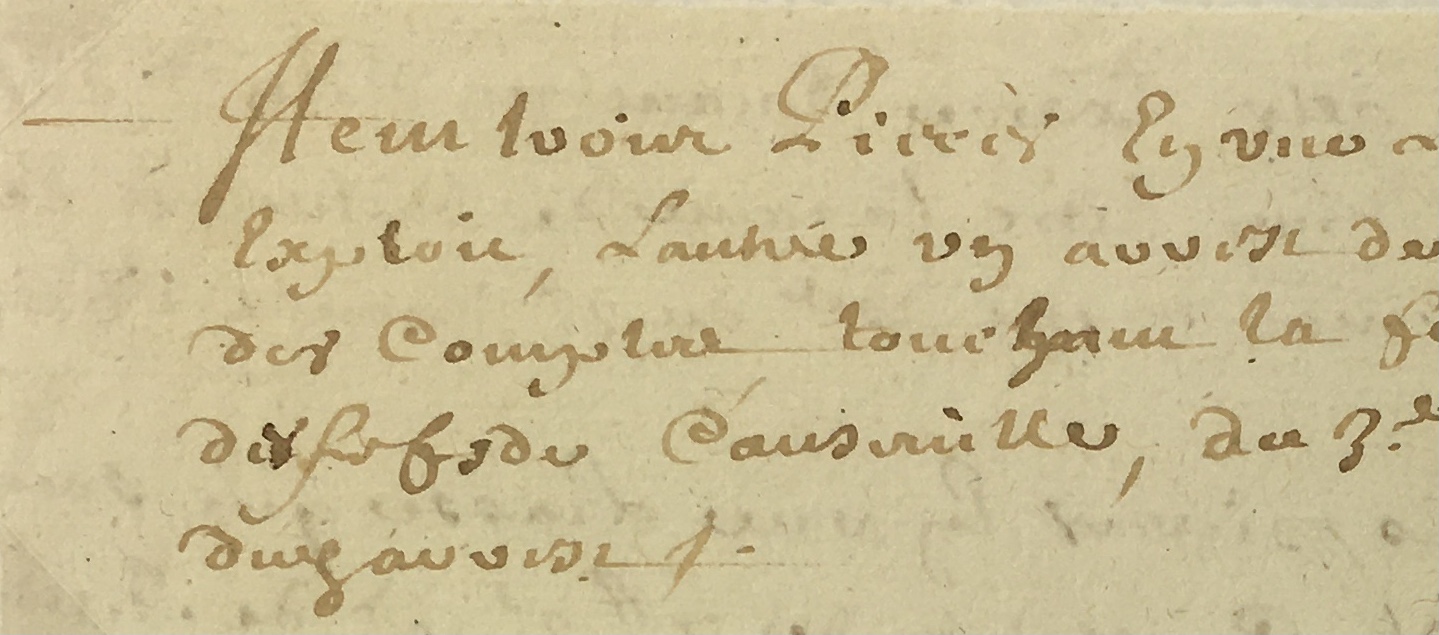 Item trois Pieces En une
Exploit, Lautre un arrest de
des Comptes touchant la
des fiefs de Causeville, du 3.e
dug arrest /.